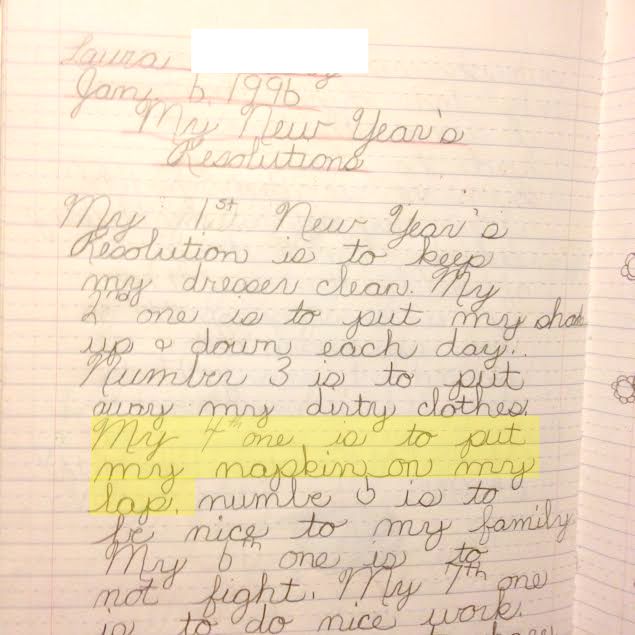 Laura
Jan. 6, 1996
My New Year's
Resolutions
My 1st New Year's
Resolution is to keep
my dresser clean. My
2nd one is to put my shade
up & down each day.
Number 3 is to put
away my dirty clothes.
My 4th one is to put
my napkin on my
lap. numbe 5 is to
be nice to my family
My 6th one is to
not fight. My 7th one
is to do nice work.